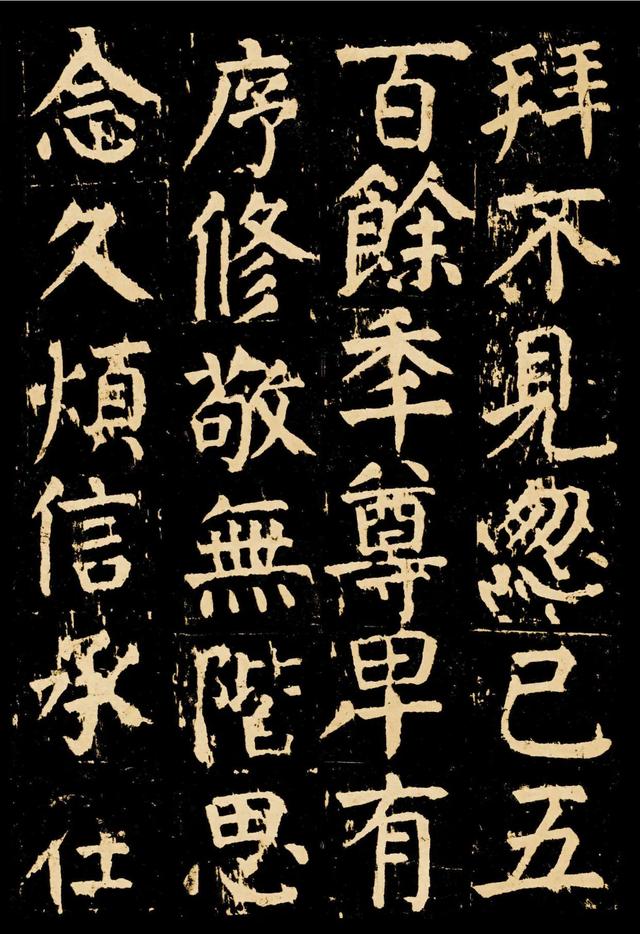 拜不見忽已五
百餘年尊卑有
序修敬無階思
念久煩信承仕